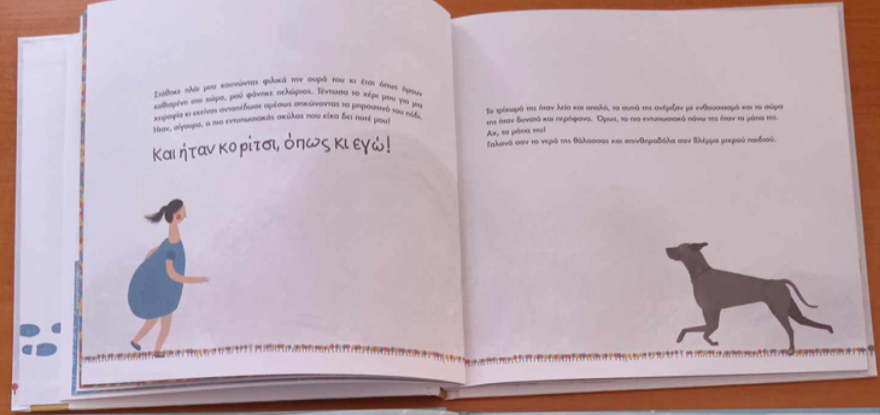 Στάθηκε πλάι μου κουνώντας φιλικά την ουρά του κι έτσι όπως ήμουν
καθισμένη στο χώμα, μού φάνηκε πελώριος. Τέντωσα το χέρι μου για μια
χειραψία κι εκείνος ανταπέδωσε αμέσως σηκώνοντας το μπροστινό του πόδι.
Ήταν, σίγουρα, ο πιο εντυπωσιακός σκύλος που είχα δει ποτέ μου!
Και ήταν κορίτσι, όπως κι εγώ!
Το τρίχωμά της ήταν λείο και απαλό, τα αυτιά της ανέμιζαν με ενθουσιασμό και το σώμα
της ήταν δυνατό και περήφανο. Όμως, το πιο εντυπωσιακό πάνω της ήταν τα μάτια της.
Αχ, τα μάτια της!
Γαλανά σαν το νερό της θάλασσας και σπινθηροβόλα σαν βλέμμα μικρού παιδιού.